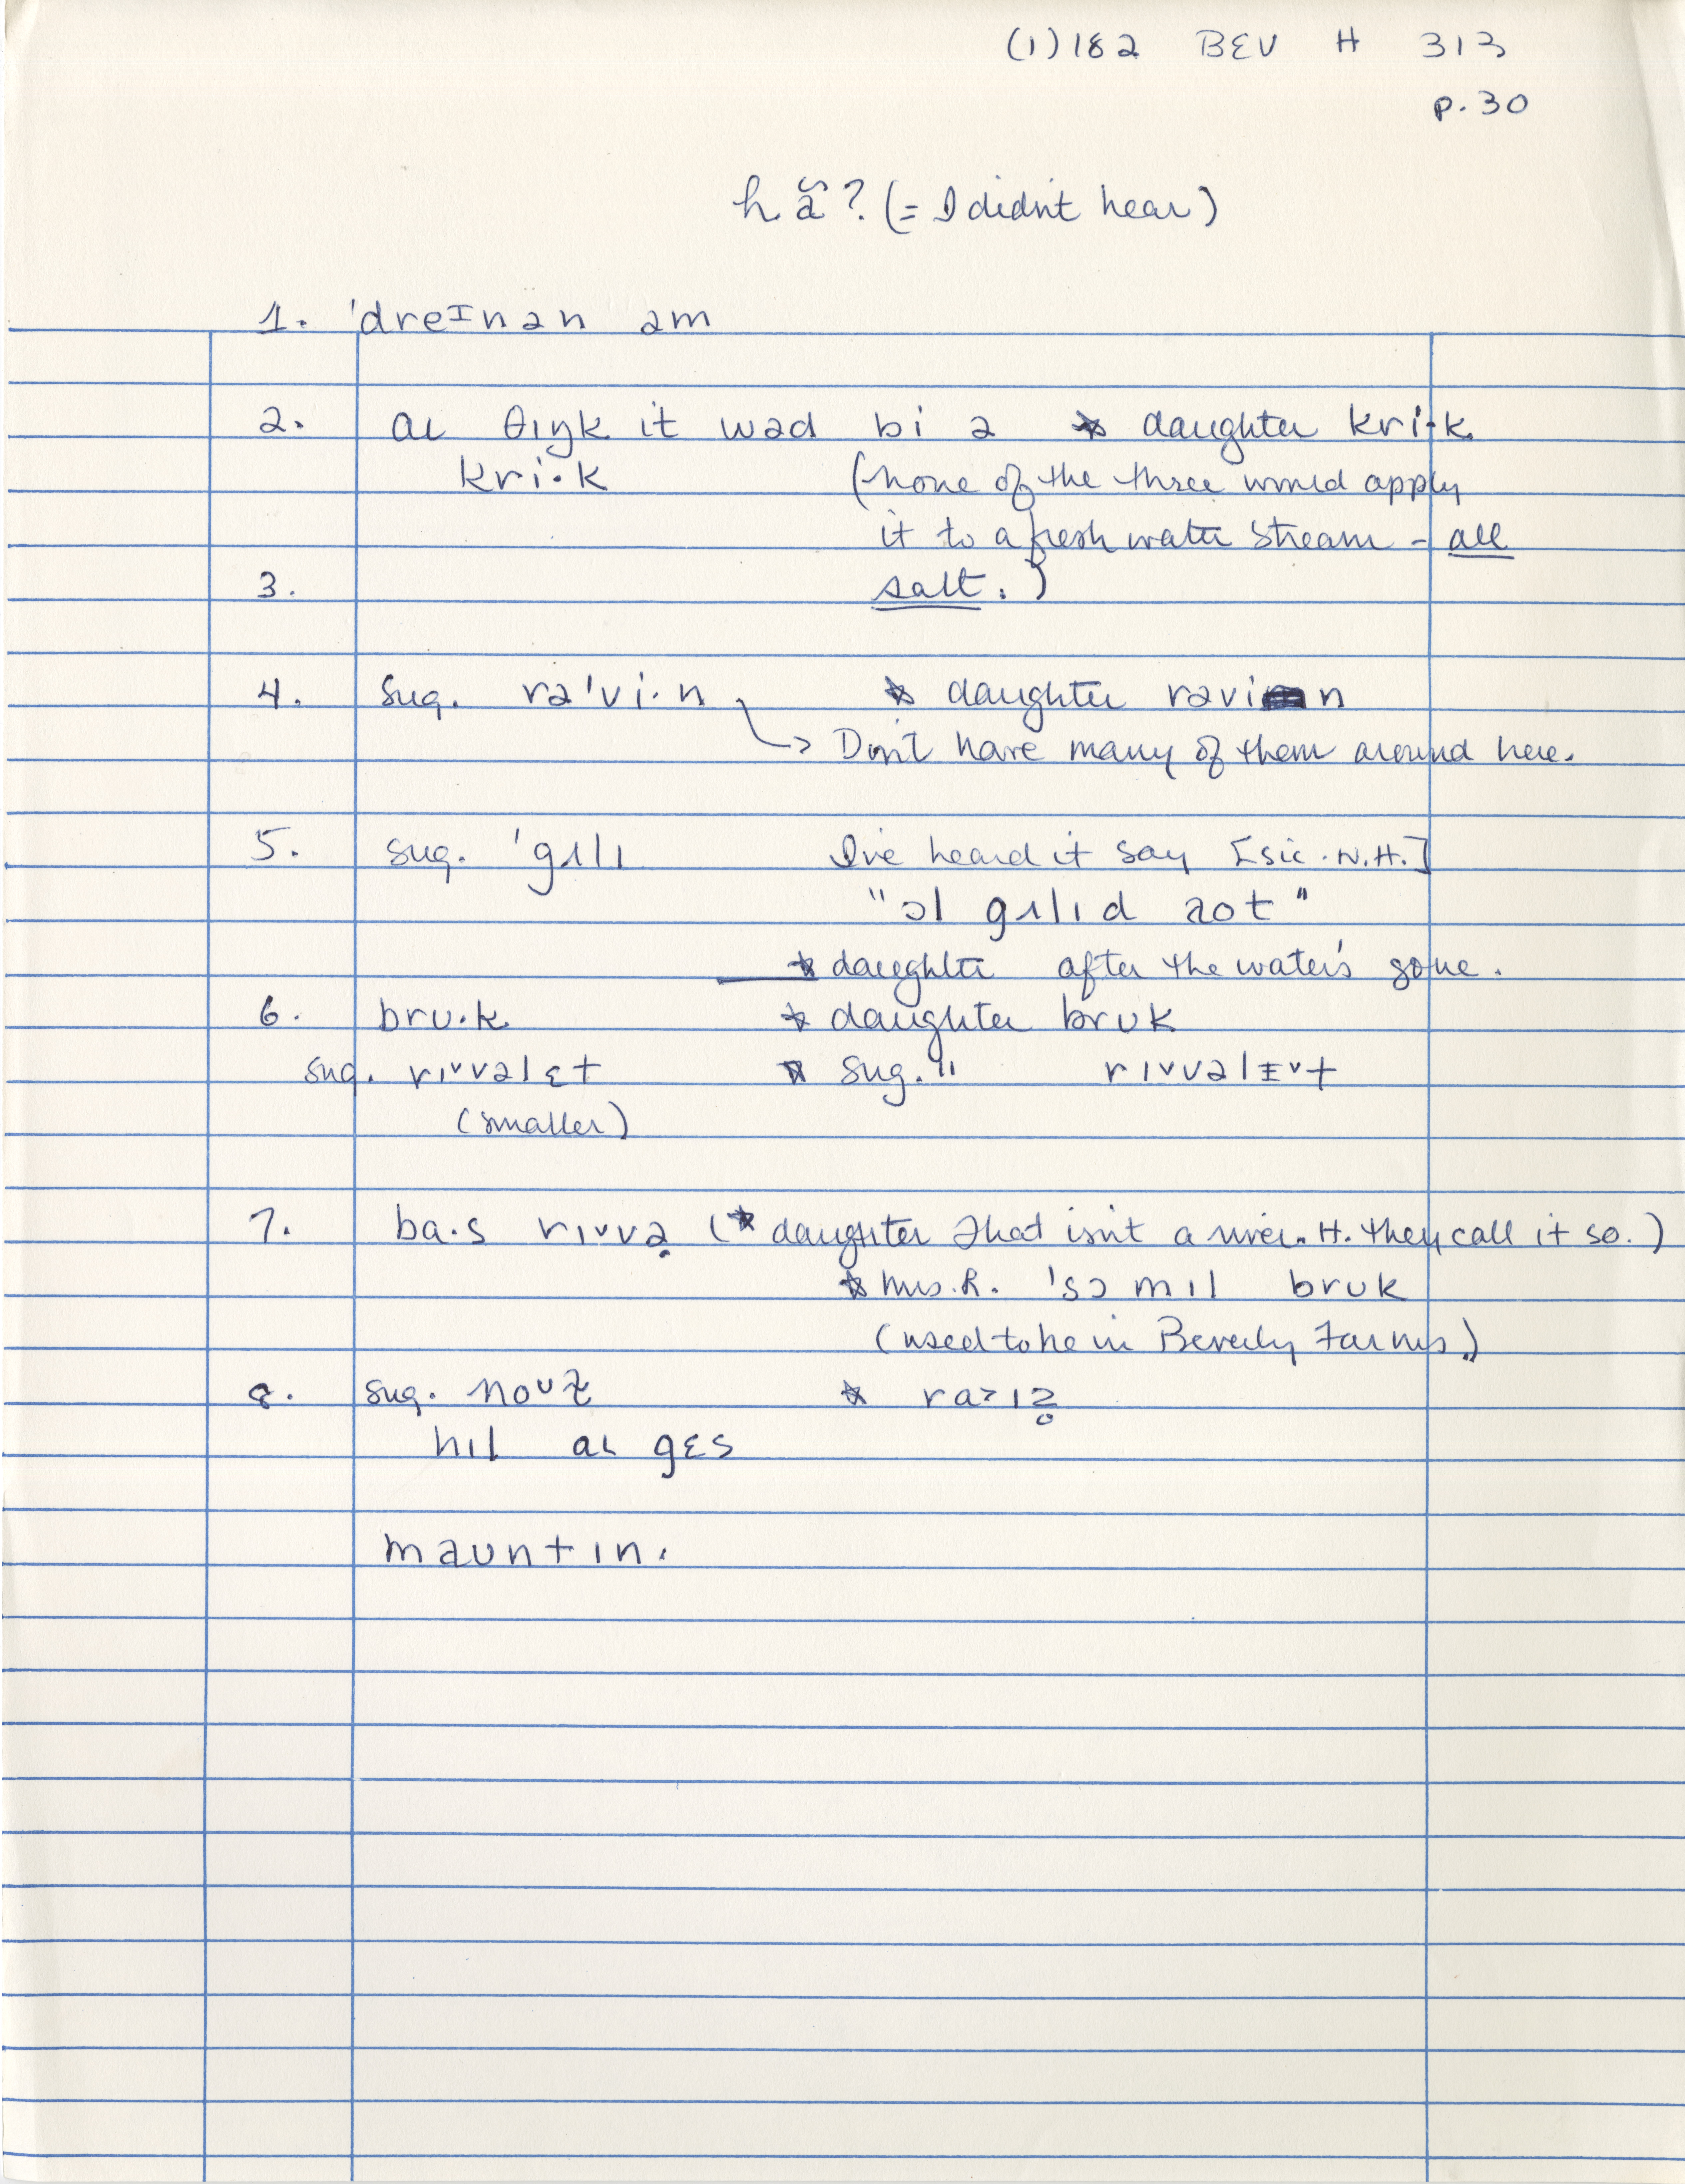 (1)182 BEV H 313
p. 30
hã? (= I didn't hear)
1. 'dreɪnən əm
2. aɩ θɪŋk it wəd bi ə * daughter kri·k.
kri·k (none of the three would apply
it to a fresh water stream - all
3. salt.)
4. sug. rə'vi·n * daughter rəvin
→ Don't have many of them around here.
5. sug. 'gʌlɪ I've heard it say [sic. N.H.]
"ɔl gʌlɪd aot"
* daughter after the water's gone.
6. brʊ·k * daughter brʊk
sug. rɪᵛvəlɛt * sug. " rɪᵛvəlɪᵛt
(smaller)
7. ba·s rɪᵛvə (* daughter That isn't a river. H. they call it so.)
* Mrs. R. 'sɔ mɪl brʊk
(used to be in Beverly Farms.)
8. sug. noᵘ *
hɪl aɩ gɛs
maʊntɪn.